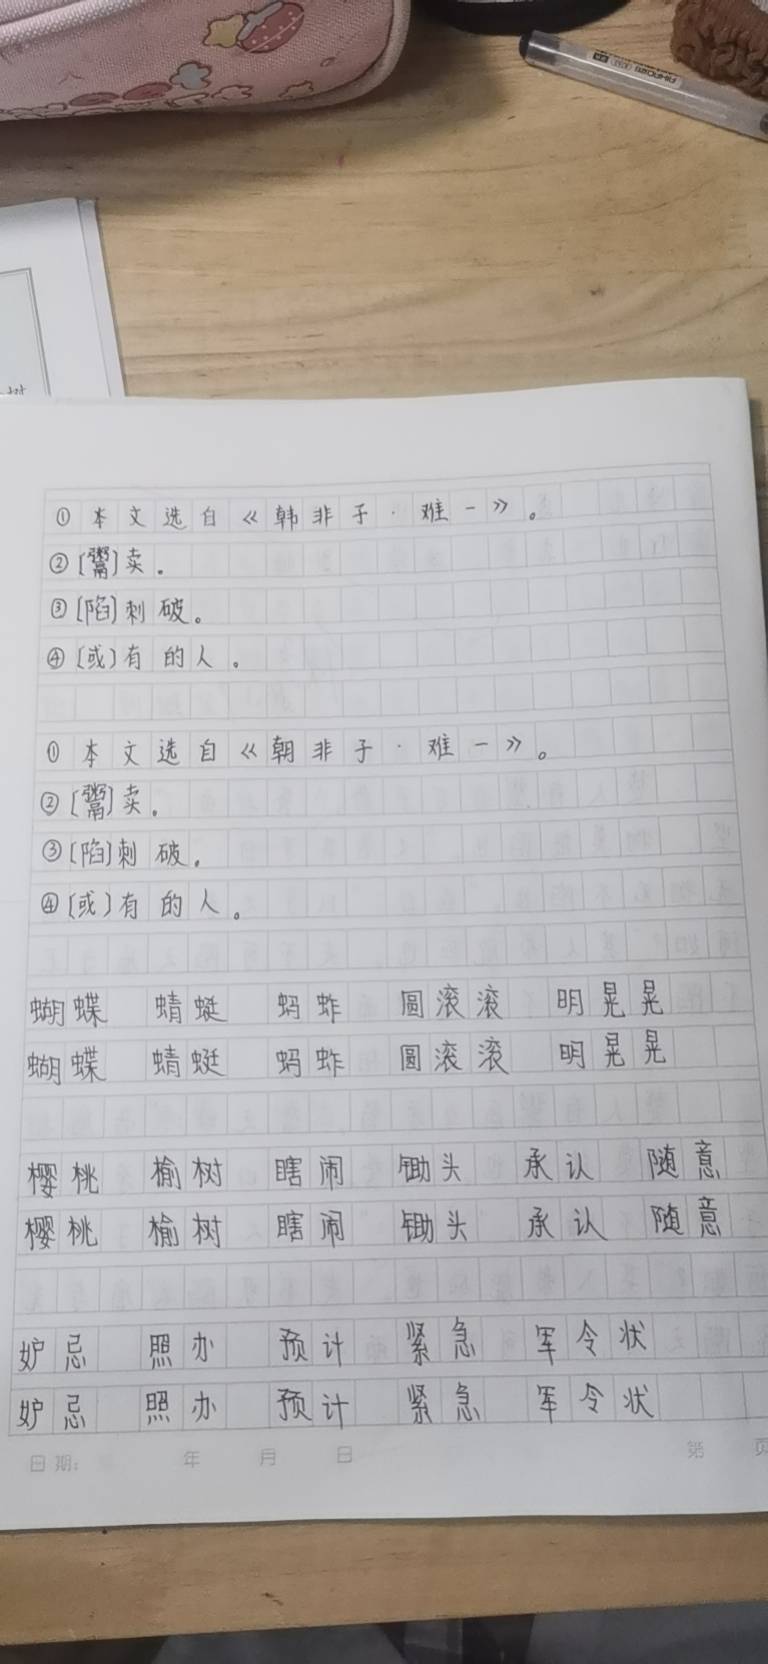 ①本文选自《韩非子·难一》。
②〔鬻〕卖。
③〔陷〕刺破。
④〔或〕有的人。
①本文选自《朝非子·难一》。
②〔鬻〕卖。
③〔陷〕刺破。
④〔或〕有的人。
蝴蝶 蜻蜓 蚂蚱 圆滚滚 明晃晃
蝴蝶 蜻蜓 蚂蚱 圆滚滚 明晃晃
樱桃 榆树 瞎闹 锄头 承认 随意
樱桃 榆树 瞎闹 锄头 承认 随意
妒忌 照办 预计 紧急 军令状
妒忌 照办 预计 紧急 军令状
日期： 年 月 日 第 页